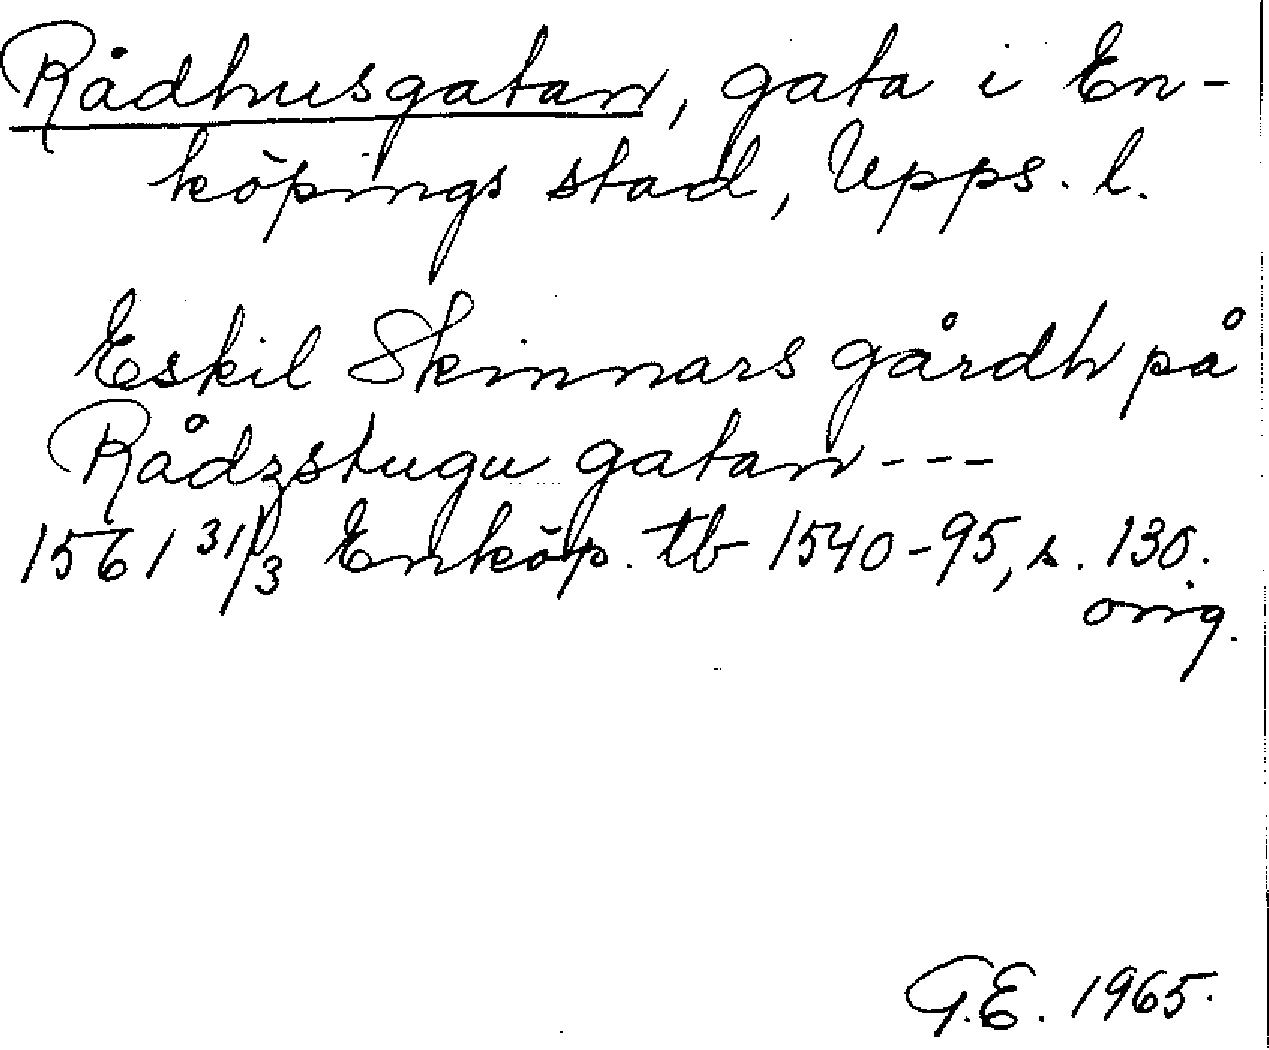 Rådhusgatan, gata i En-
köpings stad, Upps. l.
Eskil Skinnars gårdh på
Rådzstugu gatan ---
1561 31/3 Enköp. tb 1540-95, s. 130.
orig.
G.E. 1965.